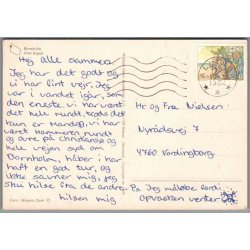 Bornholm
Hej alle sammen
Jeg har det godt og
vi har fint vejr, Jeg
var i vandet igår, som
den eneste. vi har været
det hele rundt, rundt kan
kun er Mandag, vi har
været hammeren rundt
og øvre på christiansø og
hele vejen syd om
Bornholm, håber i har
haft en god tur, og
ikke savner mig, jeg
sku hilse fra de andre
hilsen mig
Hr og Fru Nielsen
Nyrådsvej 7
4760 Vordingborg
Ps. Jeg måtte
opvasken venter